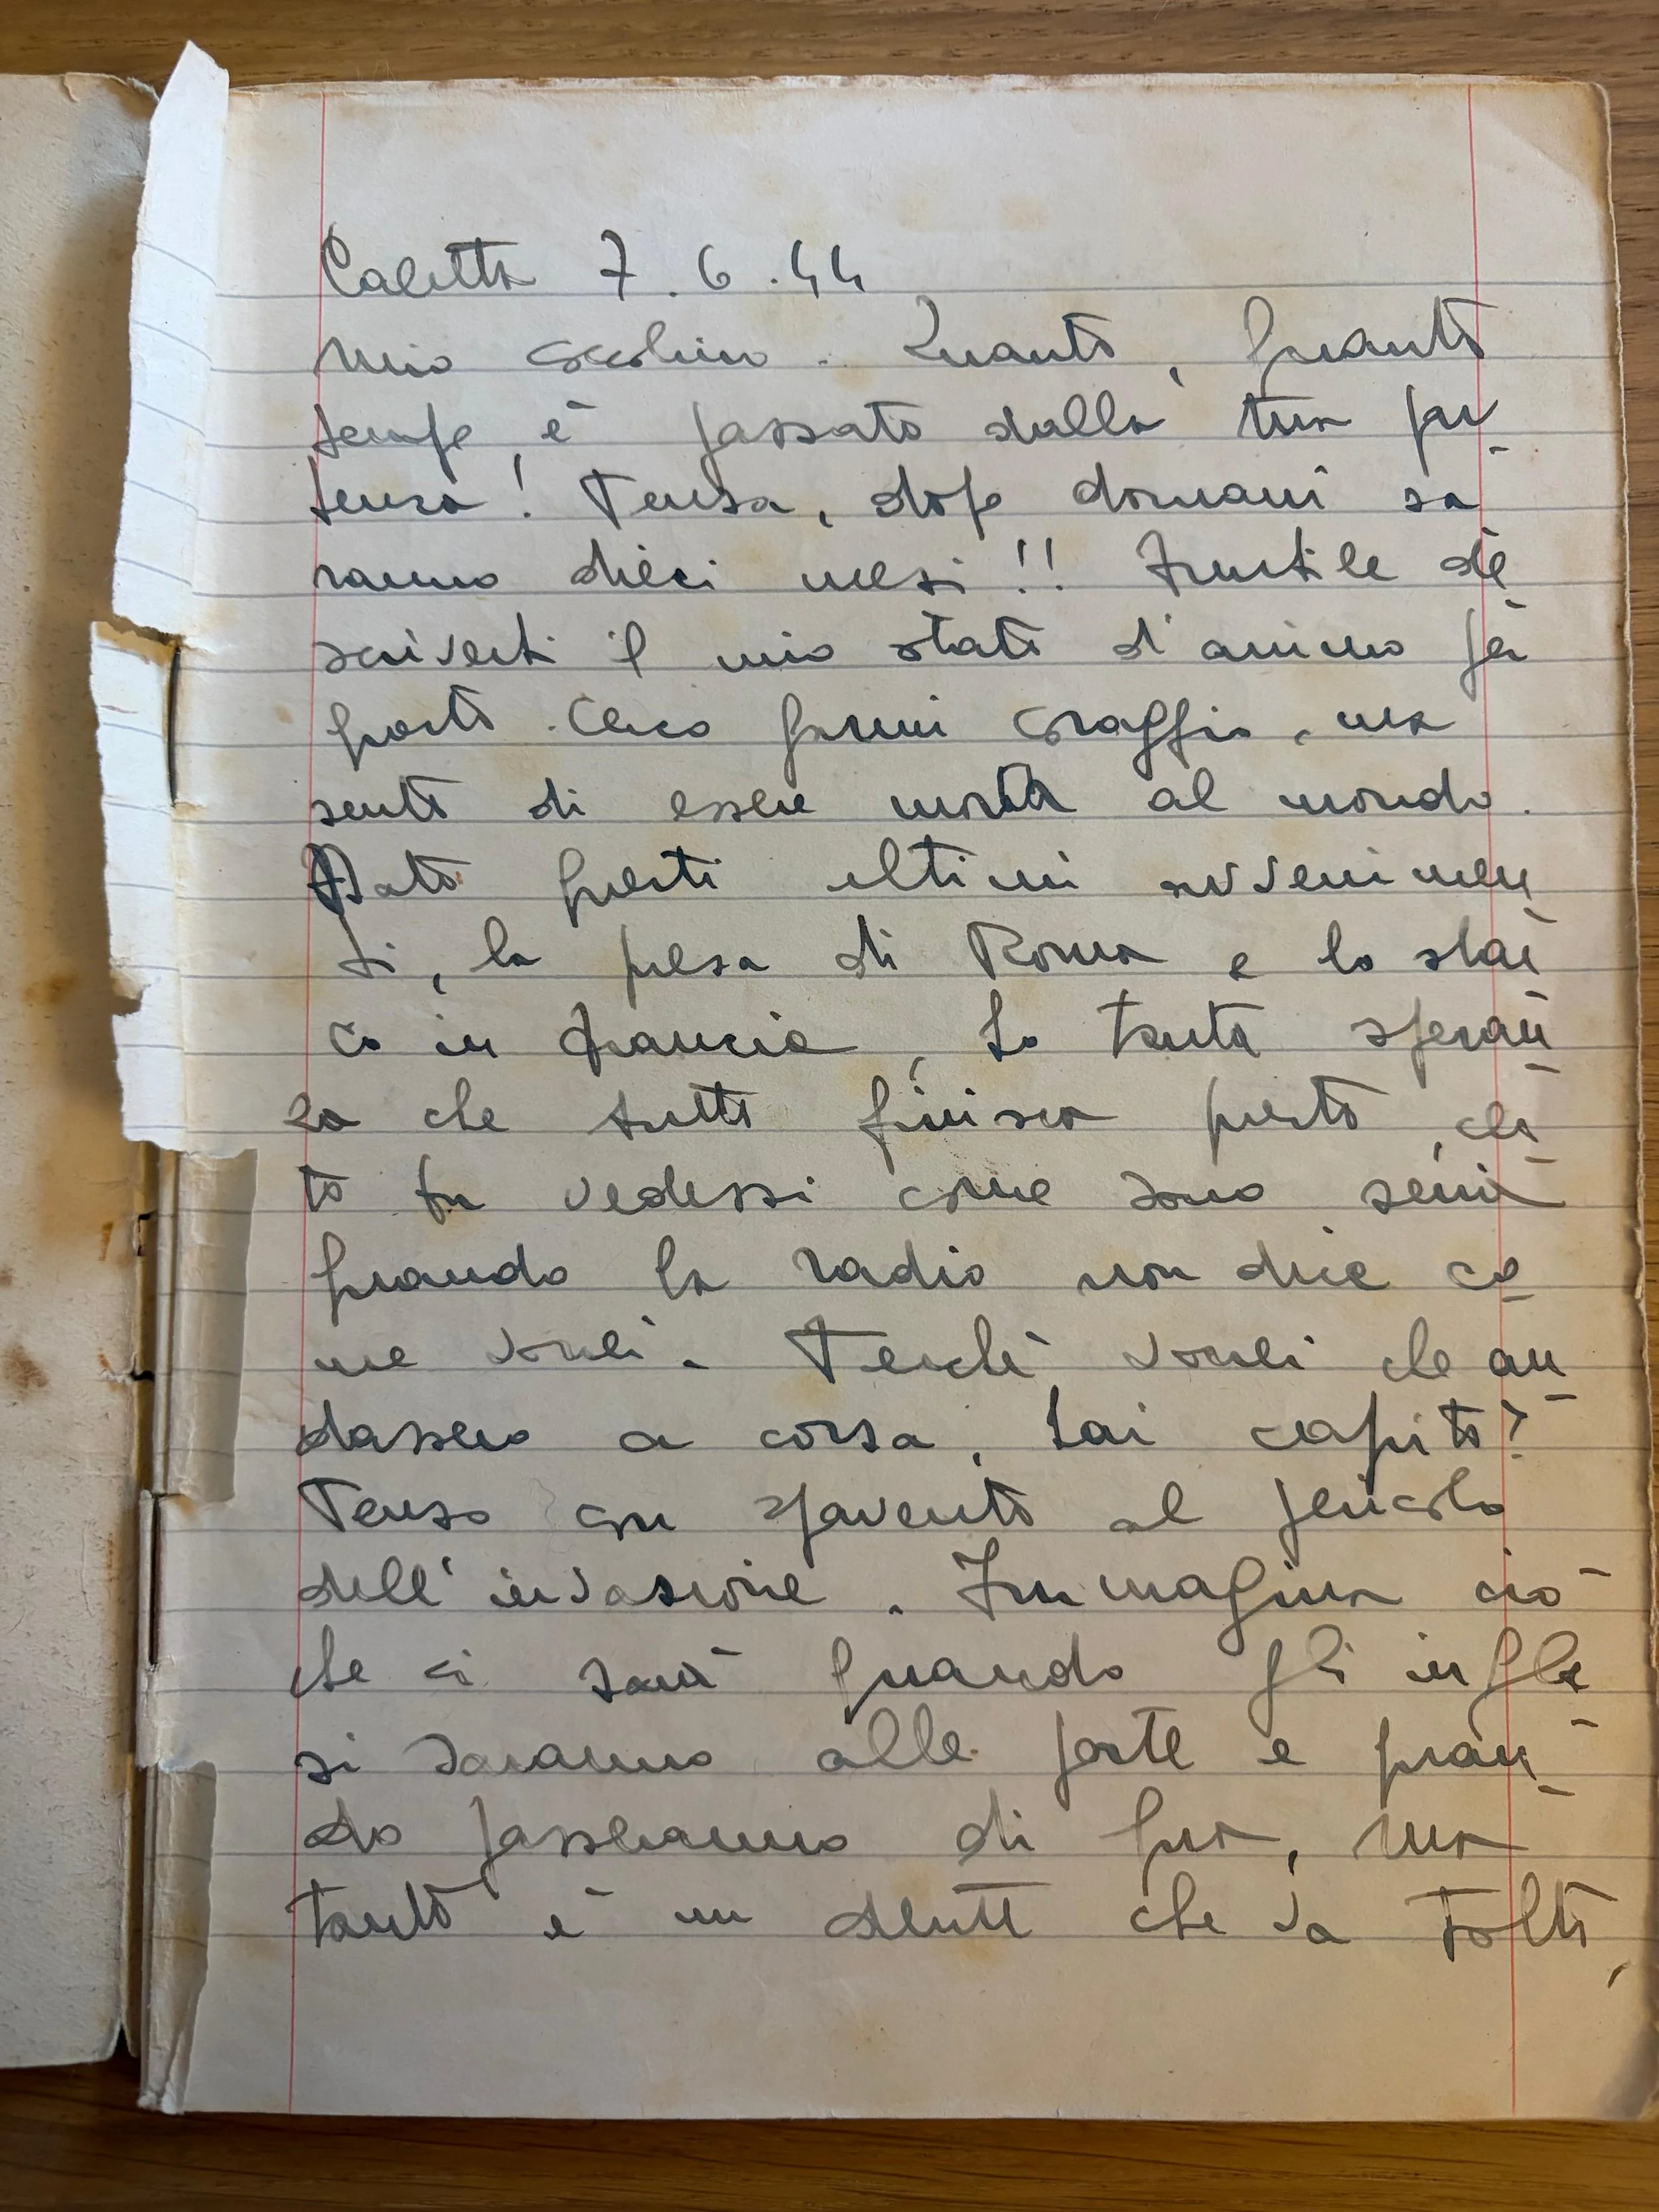 Caletta 7.6.44
Mio cecchino. Quanto, quanto
tempo è passato dalla tua par
tenza! Pensa, dopo domani sa
ranno dieci mesi!! Inutile de
scriverti il mio stato d'animo in
questo. Cerco farmi coraggio, ma
sento di essere morta al mondo.
Dato questi ultimi avvenimen
ti, la presa di Roma e lo sbar
co in Francia, ho tanta speran
za che tutto finisca presto, cer
to tu vedessi come sono seria
quando la radio non dice co
me vorrei. Perchè vorrei che an
dassero a corsa, hai capito?
Penso con spavento al pericolo
dell'invasione. Immagina ciò
che ci sarà quando gli ingle
si saranno alle porte e quan
do passeranno di qua, ma
tanto è un dente che va tolto,